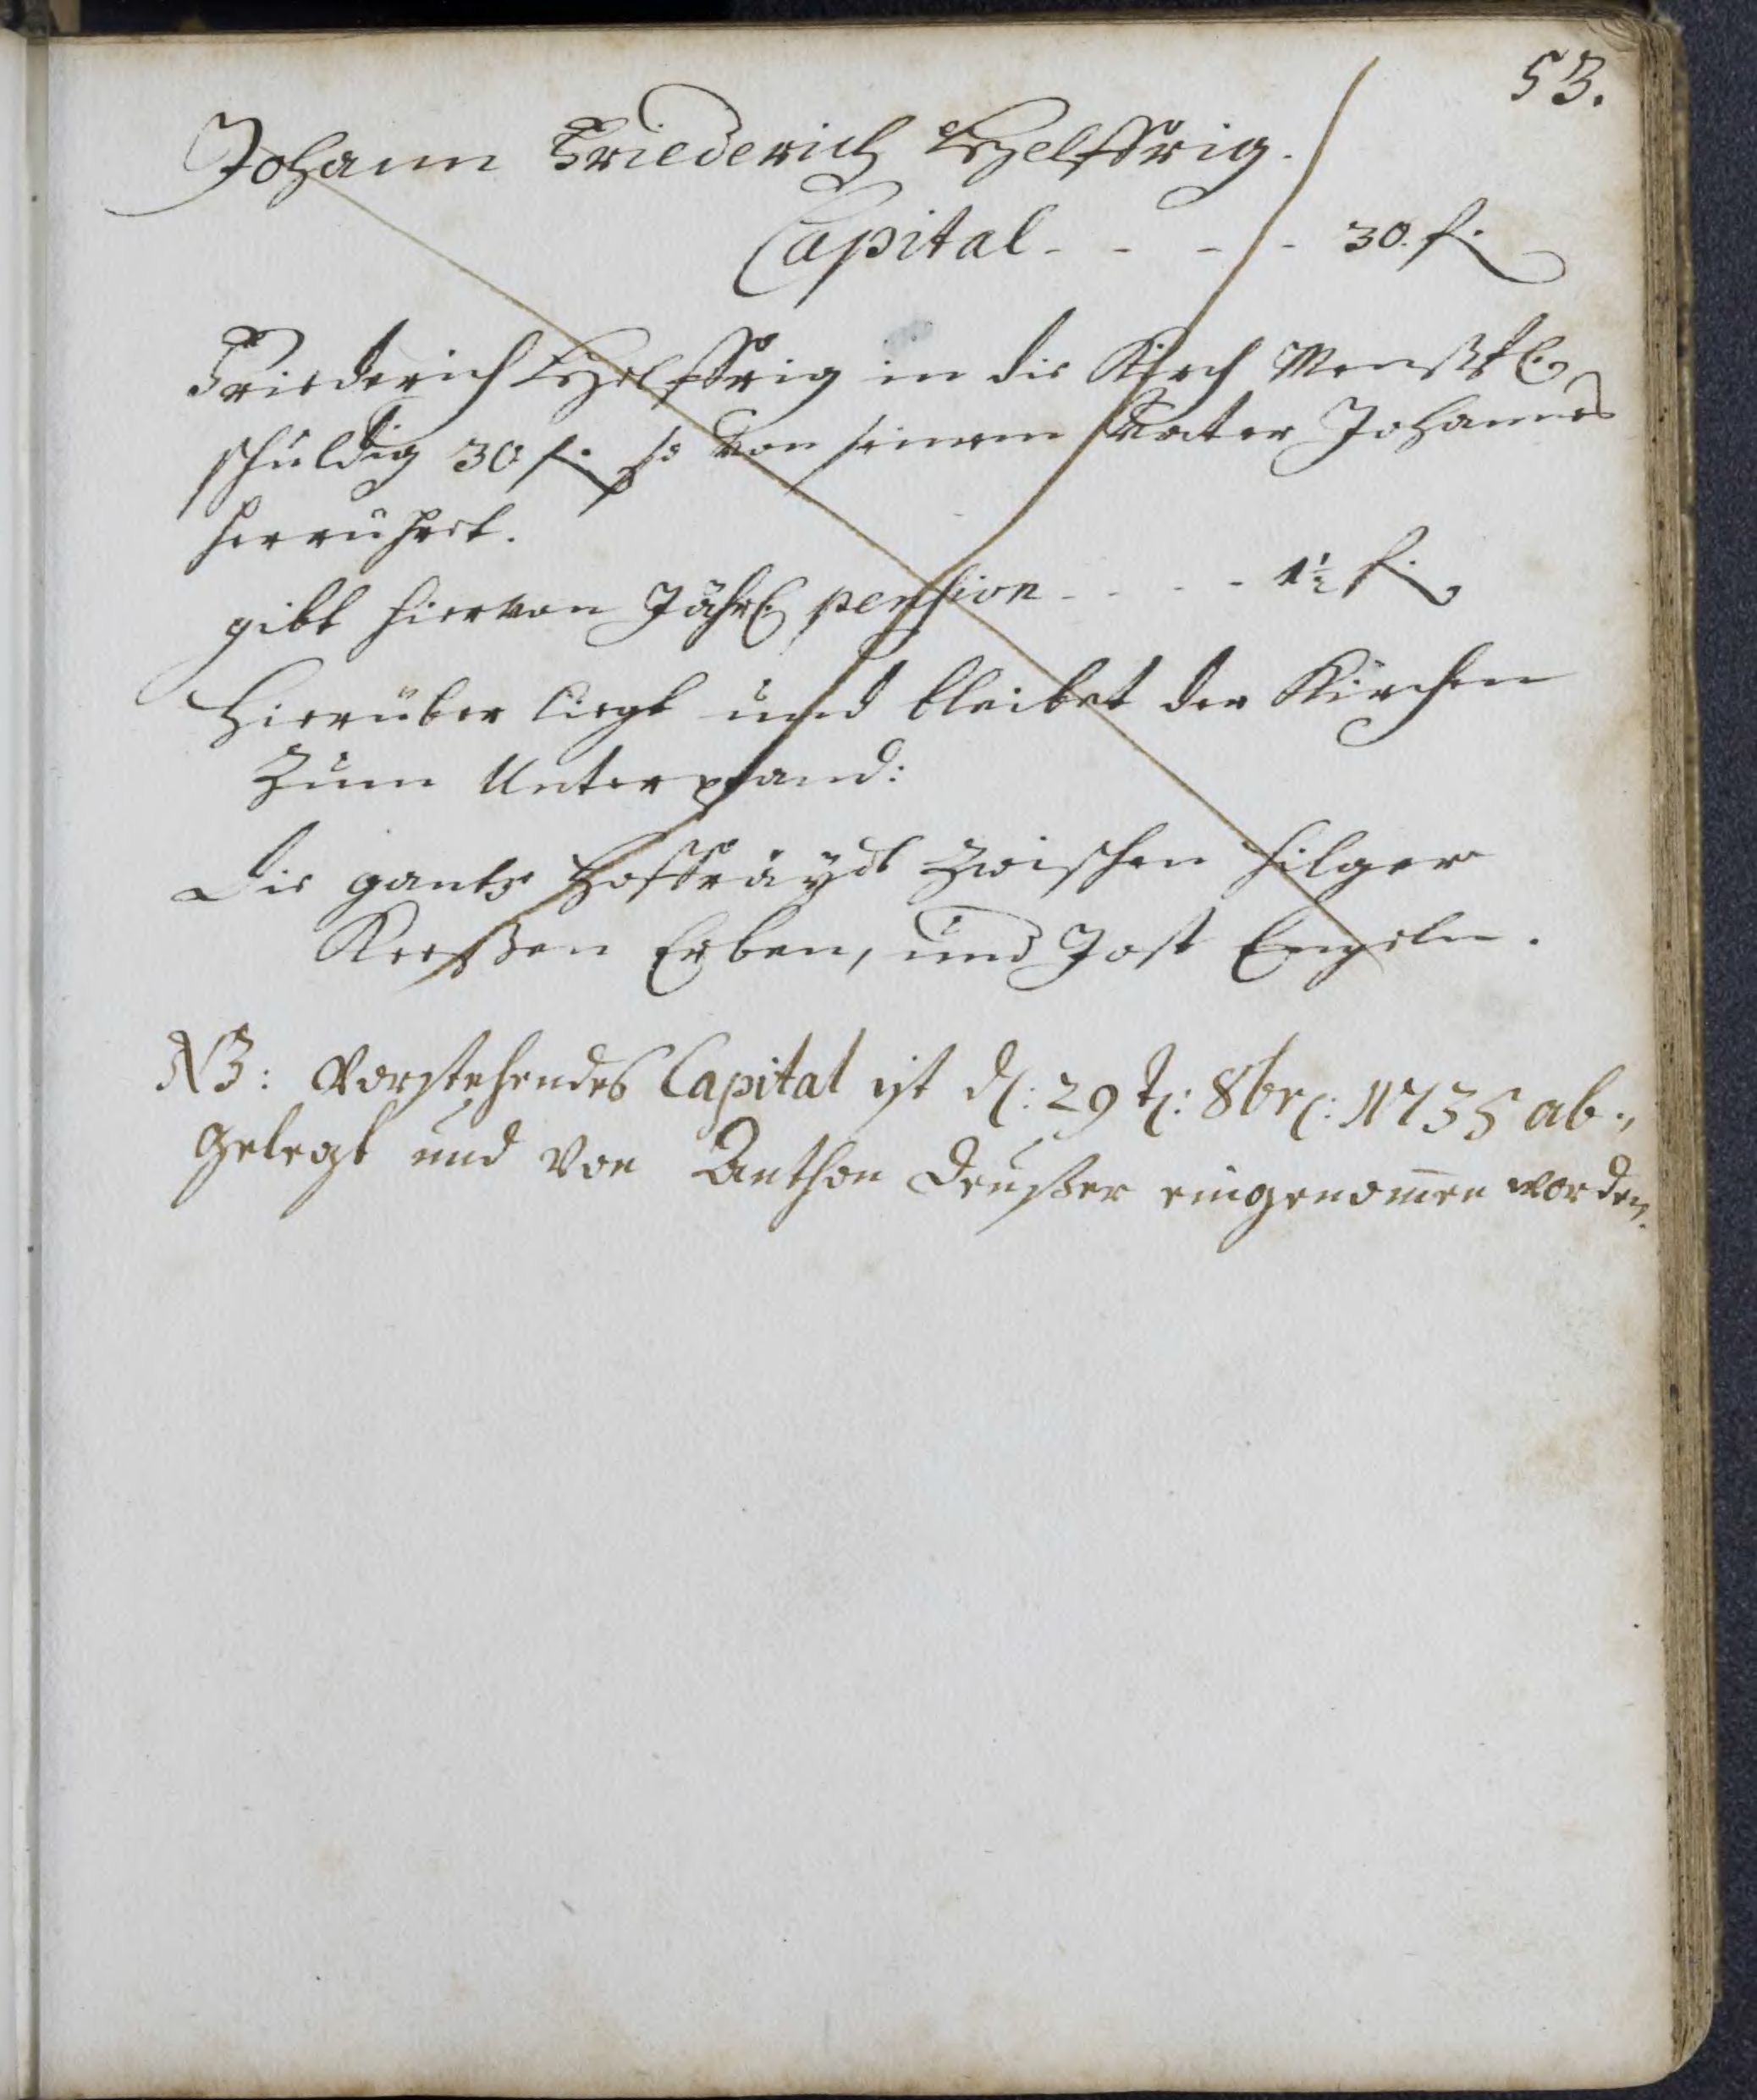 53.
Johann Friederich Helffrig.
Capital - - - - 30. f.
Friederich Helffrig in die Kirch
schuldig 30 f. so von seinem Vater Johannes
herrühret.
gibt hiervon Jährl. pension - - - - 1½ f.
Hierüber liegt und bleibet der Kirchen
zum Unterpfand:
Die gantze Hoffräydt zwischen Hilger
Erben, und Jost Engeln.
NB: Vorstehendes Capital ist d: 29 t: 8br: 1735 ab-,
gelegt und von Anthon Deußer eingenom̄en worden.